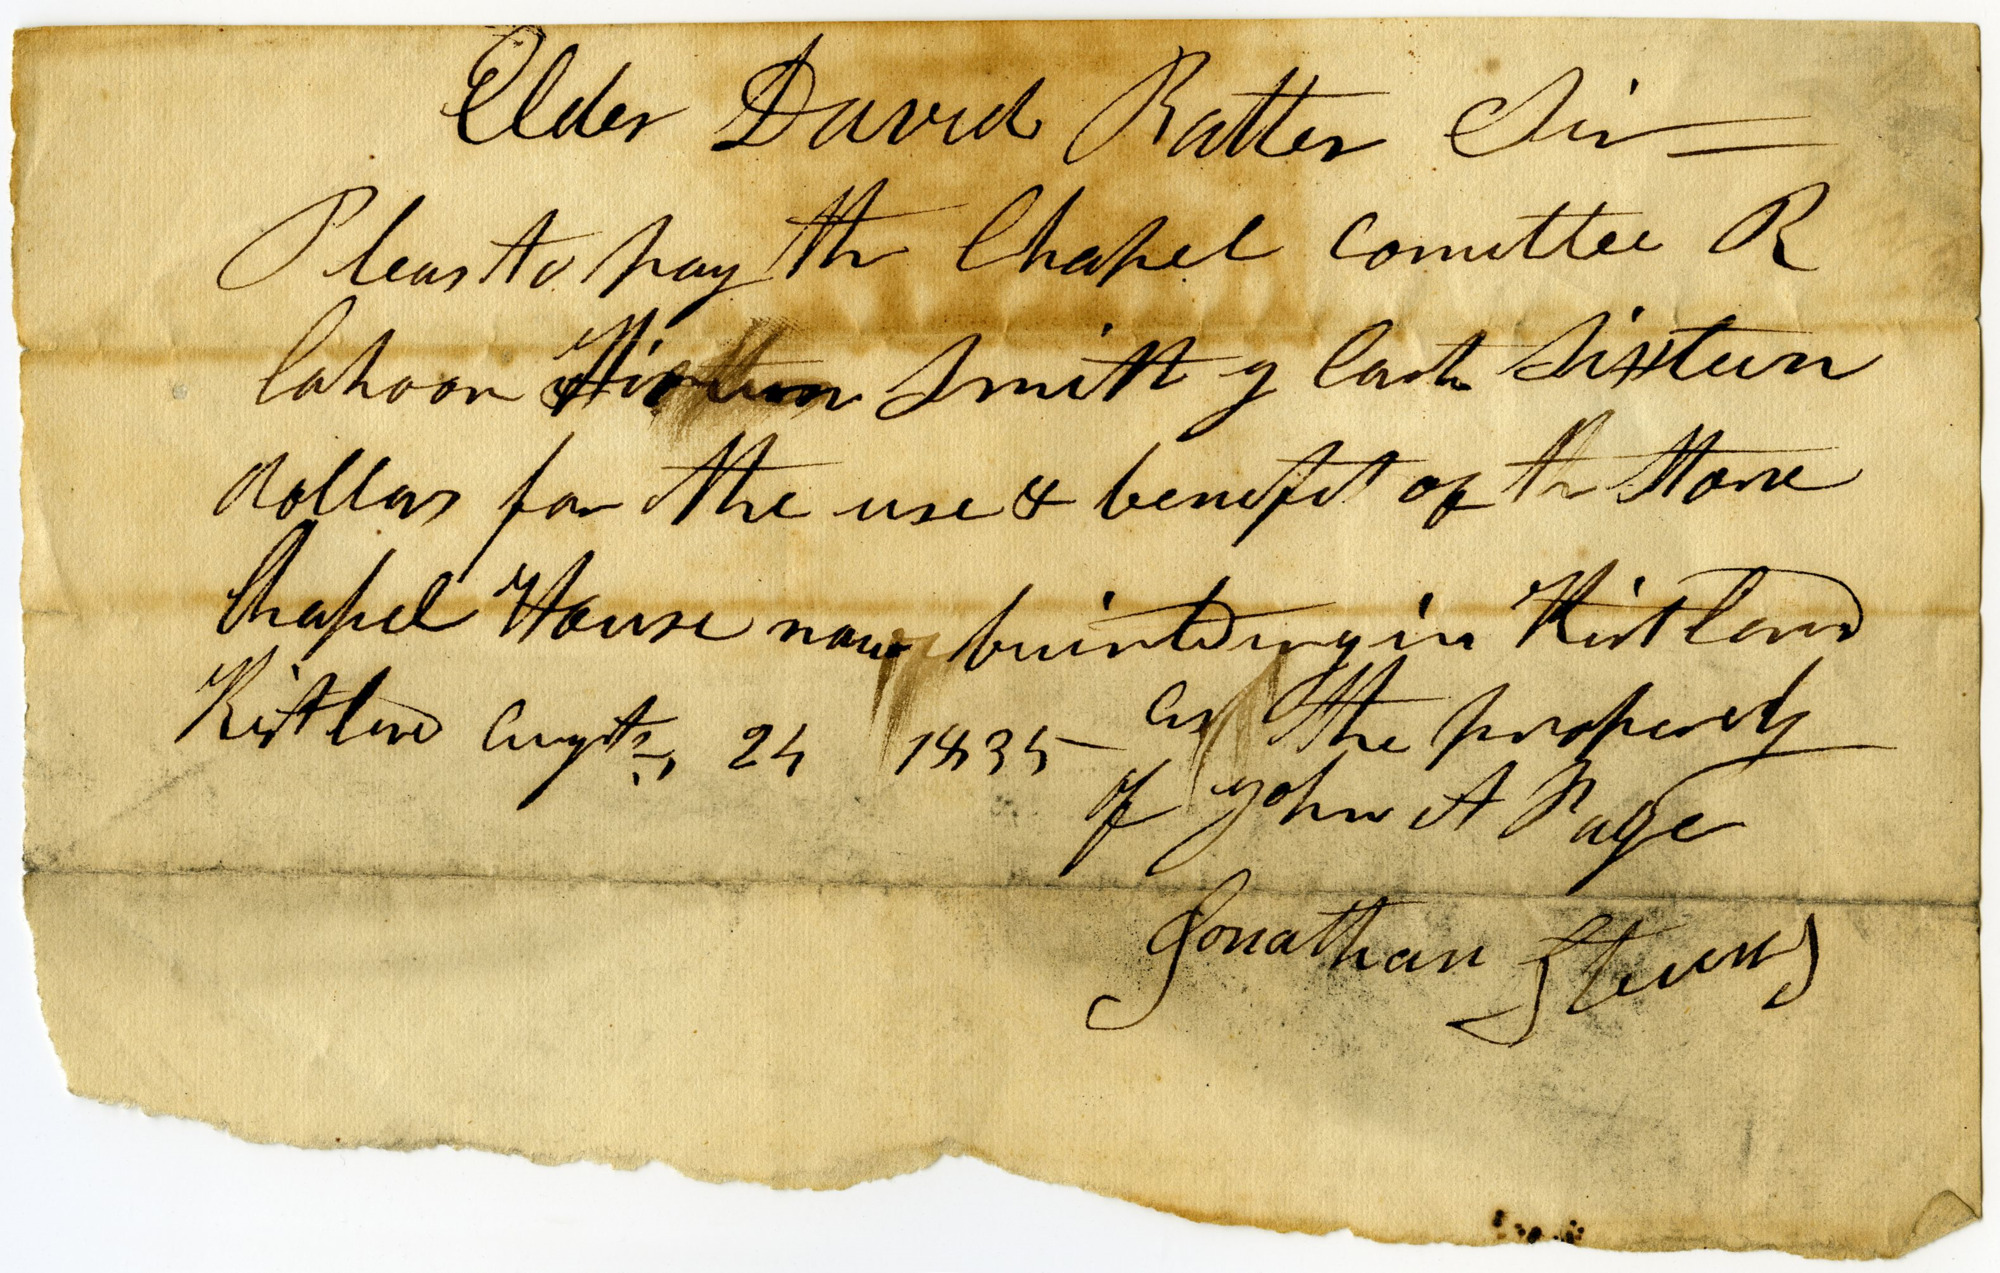 Elder David Ratter Sir —
Pleas to pay the Chapel comittee R
Cahoon Smith & Cash Sixteen
dollars for the use & benefit of th Stone
Chapel House now buintding in Kirtland
Kirtland August 24 1835 — as the property
of John A Page
Jonathan Stevens